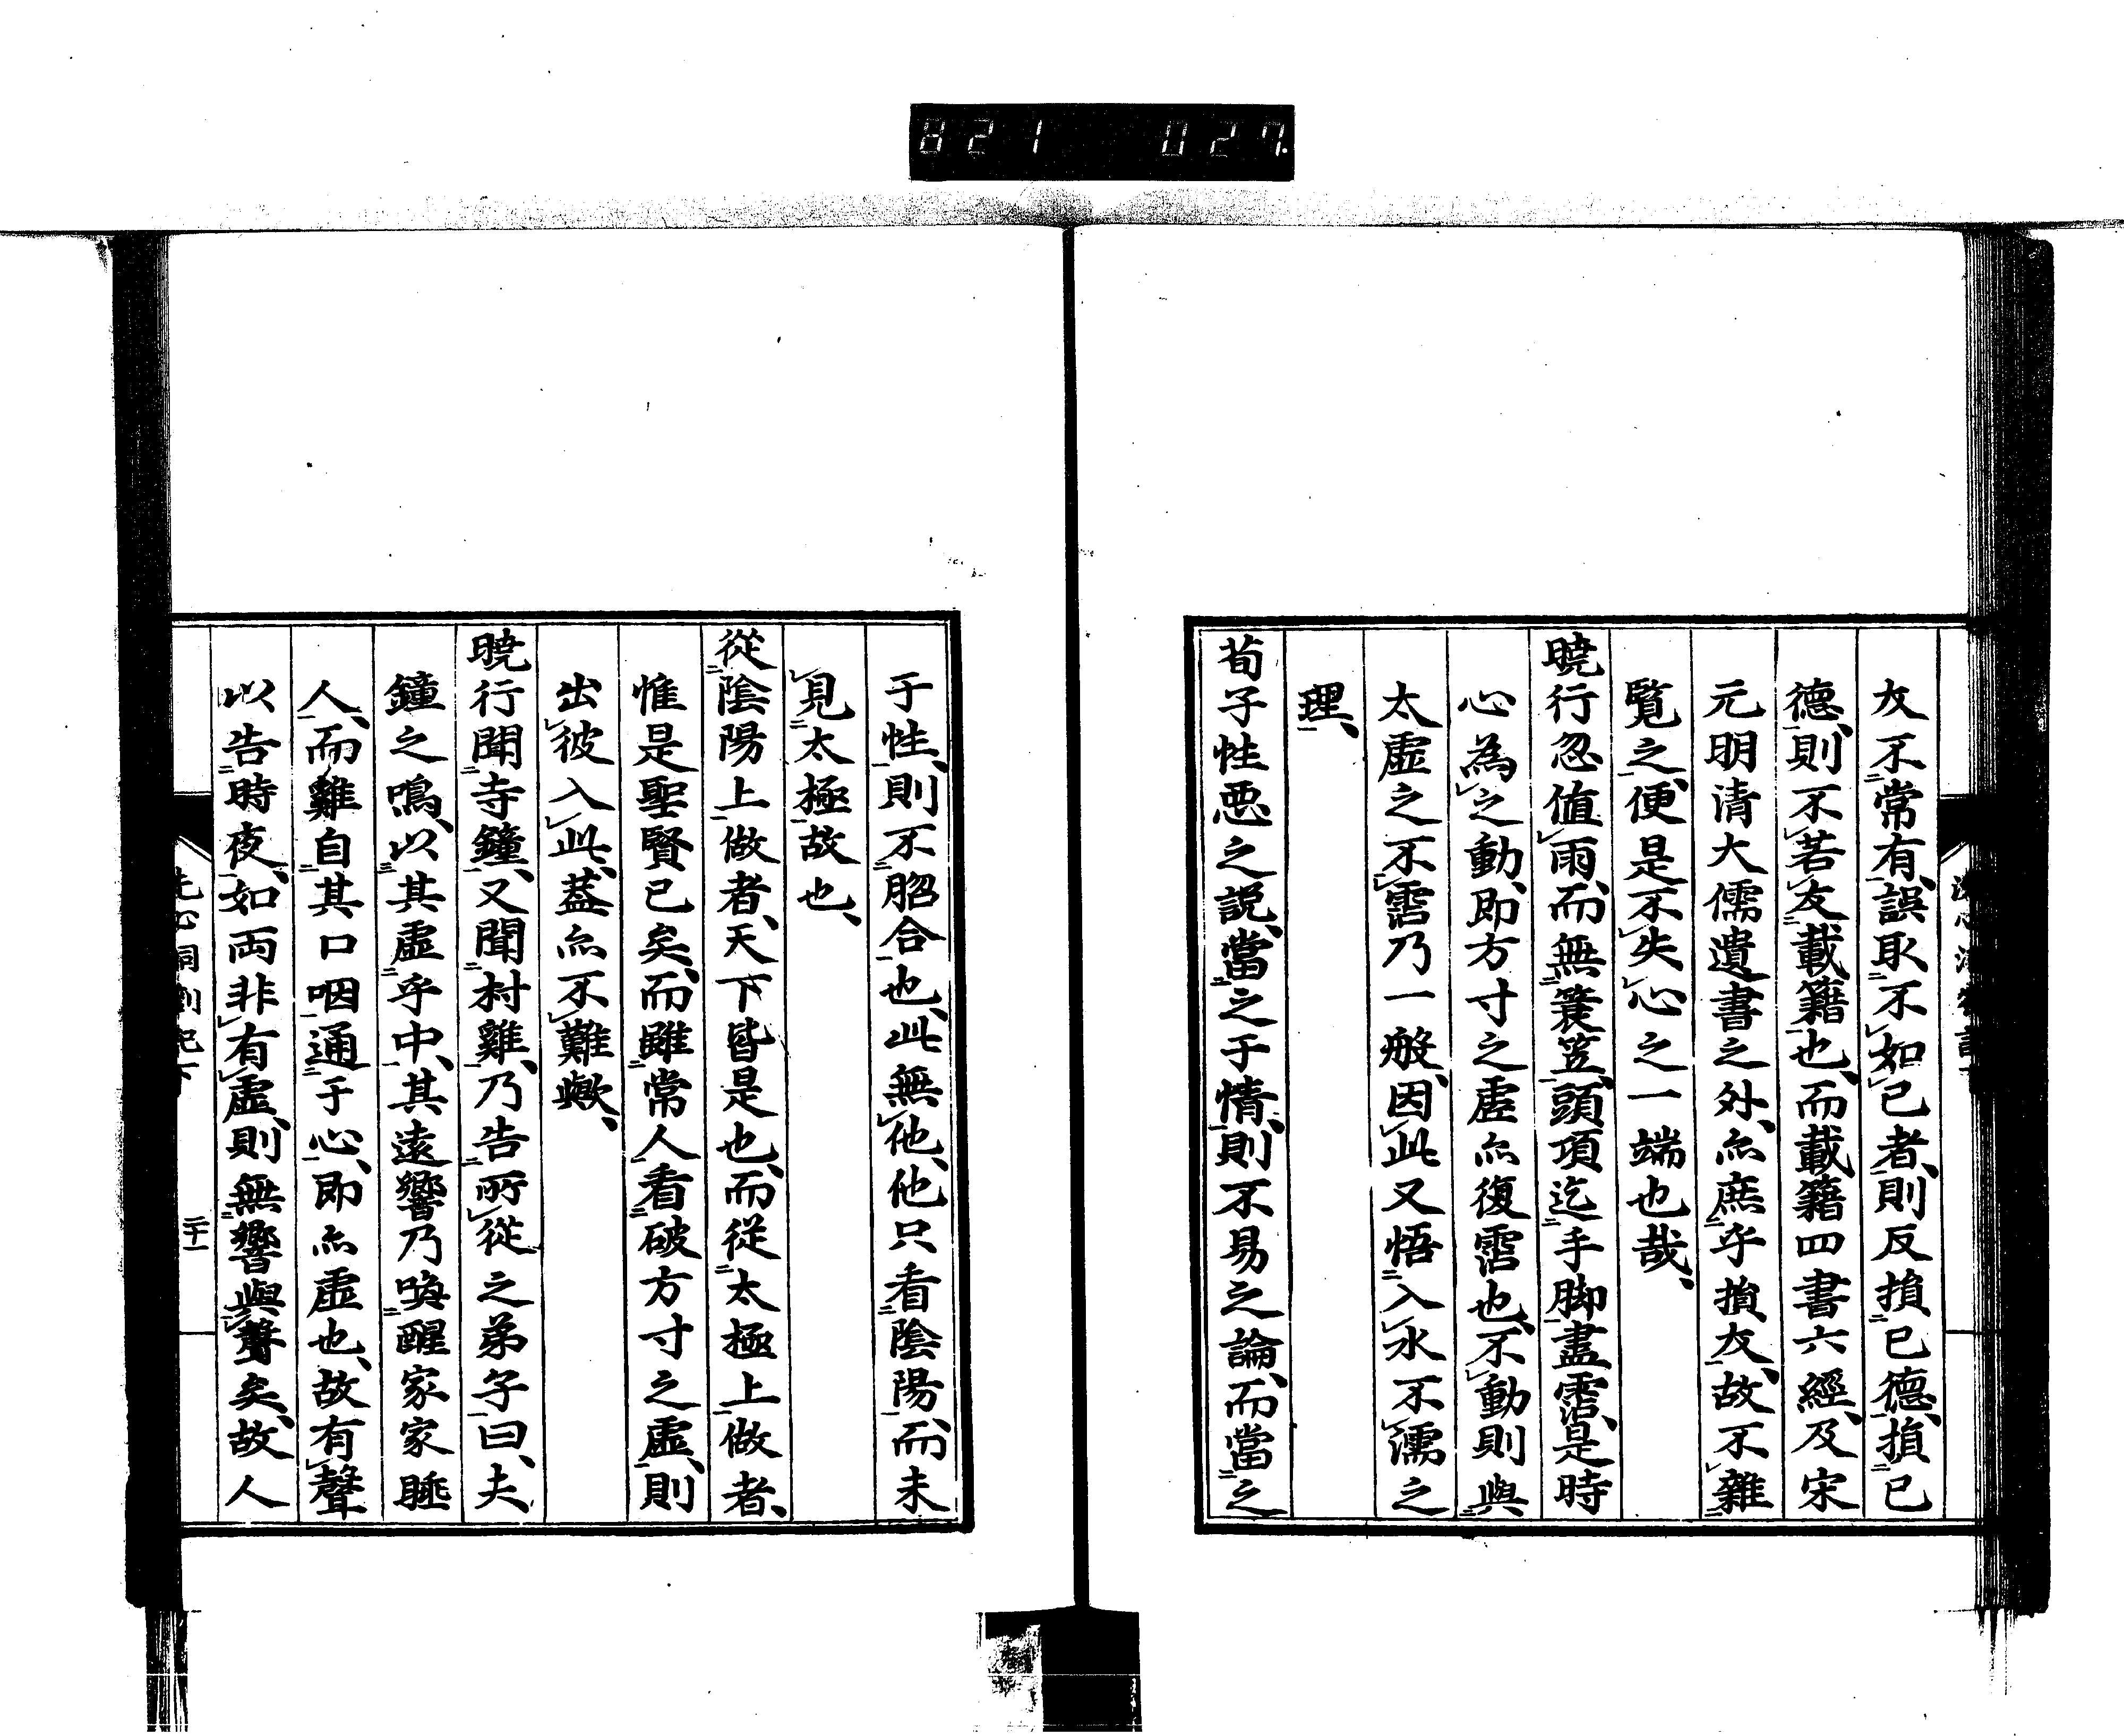 821 027
友不常有、誤取不如己者、則反損己德、損己
德、則不若友載籍也、而載籍四書六經、及宋
元明清大儒遺書之外、亦庶乎損友、故不雜
覧之、便是不失心之一端也哉、
曉行忽値雨、而無簑笠、頭項迄手脚盡霑、是時
心為之動、即方寸之虛亦復霑也、不動則與
太虛之不霑乃一般、因此又悟入水不濡之
理、
荀子性惡之説、當之于情、則不易之論、而當之
于性、則不脗合也、此無他、他只看陰陽、而未
見太極故也、
從陰陽上做者、天下皆是也、而從太極上做者、
惟是聖賢已矣、而雖常人看破方寸之虛、則
出彼入此、蓋亦不難歟、
曉行聞寺鐘、又聞村雞、乃告所從之弟子曰、夫
鐘之鳴、以其虛乎中、其遠響乃喚醒家家睡
人、而雞自其口咽通于心、即亦虛也、故有聲
以告時夜、如両非有虛、則無響與聲矣、故人
洗心洞劄記下
二十一